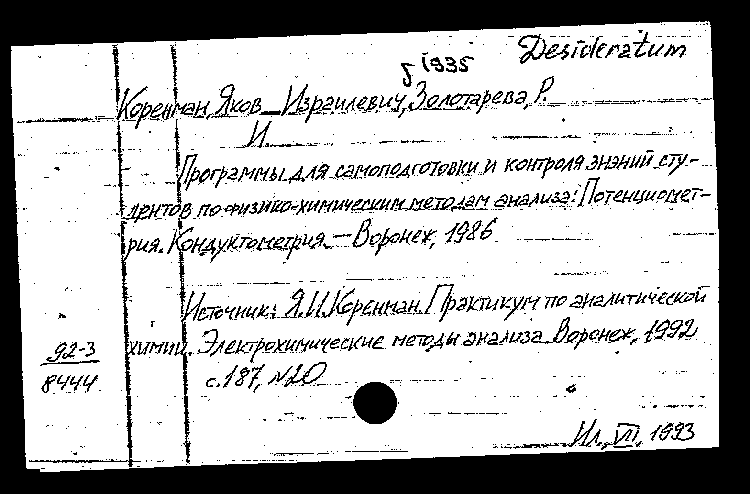 Desideratum
1935
Коренман, Яков Израилевич, Золотарева, Р.
И
Программы для самоподготовки и контроля знаний сту-
дентов по физико-химическим методам анализа: Потенциомет-
рия. Кондуктометрия. — Воронеж, 1986
Источник: Я.И. Коренман. Практикум по аналитической
химии. Электрохимические методы анализа. Воронеж, 1992
с.187, №20
92-3
8444
Ил., VII, 1993